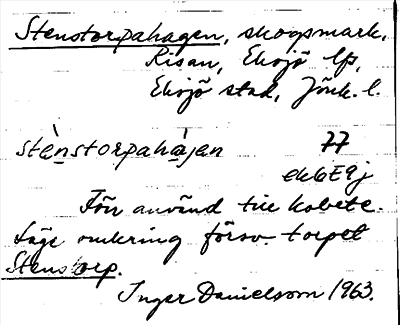 Stenstorpahagen, skogsmark,
Risan, Eksjö lfs,
Eksjö stad, Jönk. l.
stè̱nstorpahà̱jen 77
ek6E9j
Förr använd till kobete.
Läge omkring försv. torpet
Stenstorp.
Inger Danielsson 1963.